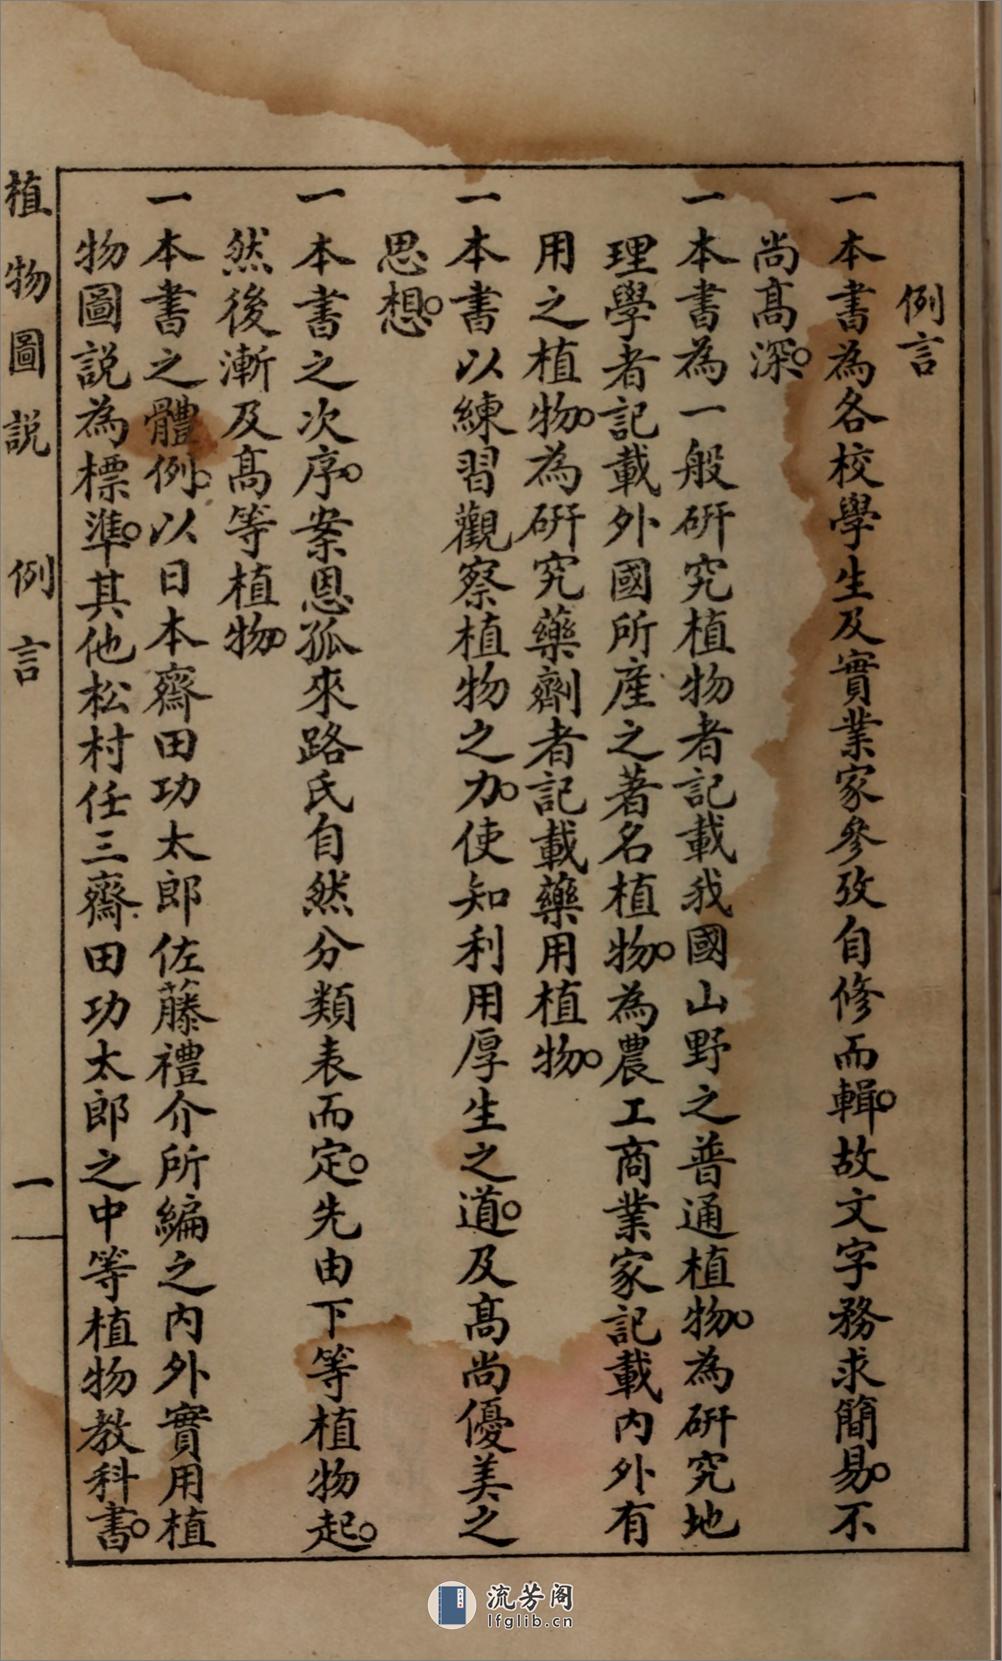 例言
一本書為各校學生及實業家參攷自修而輯。故文字務求簡易。不
尚高深。
一本書為一般研究植物者記載我國山野之普通植物。為研究地
理學者記載外國所產之著名植物。為農工商業家記載內外有
用之植物。為研究藥劑者記載藥用植物。
一本書以練習觀察植物之力。使知利用厚生之道。及高尚優美之
思想。
一本書之次序。案恩孤來路氏自然分類表而定。先由下等植物起。
然後漸及高等植物。
一本書之體例。以日本齋田功太郎佐藤禮介所編之內外實用植
物圖説為標準。其他松村任三齋田功太郎之中等植物教科書。
植物圖説 例言 一
流芳阁
lfglib.cn